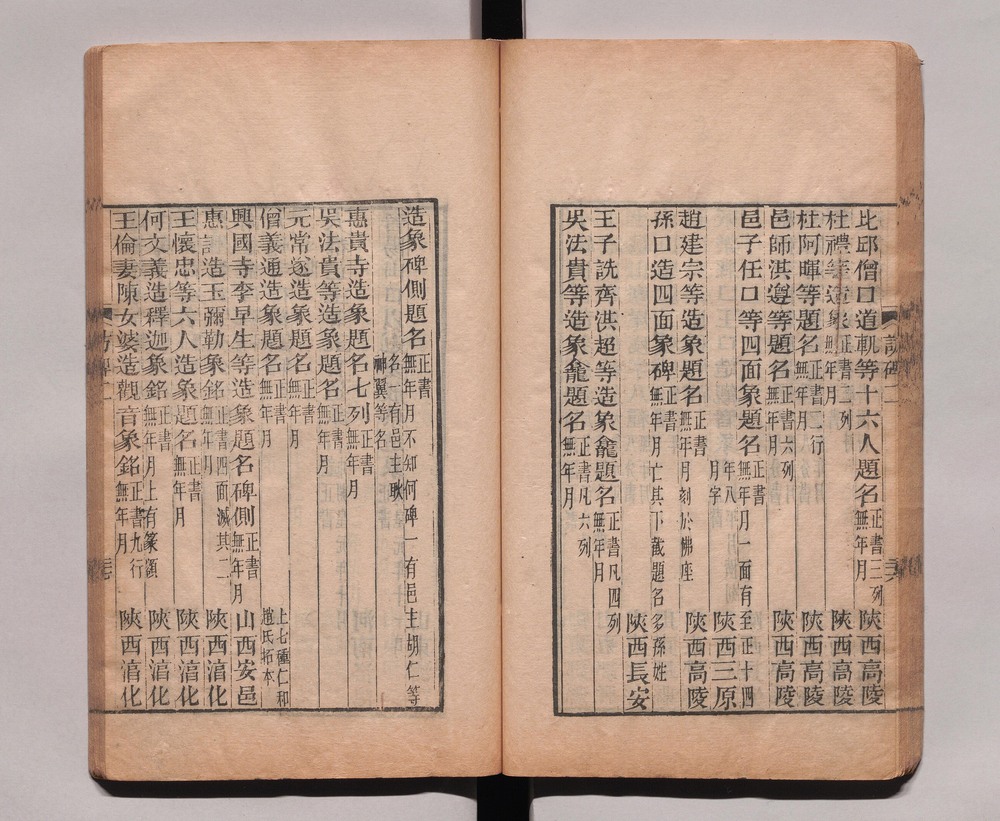 比邱僧口道軌等十六人題名正書三列無年月 陝西高陵
杜禮等造象正書三列無年月 陝西高陵
杜阿暉等題名正書二行無年月 陝西高陵
邑師洪遵等題名正書六列無年月 陝西高陵
邑子任口等四面象題名正書無年月一面有至正十四年八月字 陝西三原
趙建宗等造象題名正書無年月刻於佛座 陝西高陵
孫口造四面象碑正書無年月亡其下截題名多孫姓 陝西長安
王子詵齊洪超等造象龕題名正書凡四列無年月
吳法貴等造象龕題名正書凡六列無年月
造象碑側題名正書無年月不知何碑一有邑主胡仁等名一有邑主耿神翼等名
惠貴寺造象題名七列正書無年月
吳法貴等造象題名正書無年月
元常遂造象題名正書無年月
僧義通造象題名正書無年月 上七種仁和趙氏拓本
興國寺李早生等造象題名碑側正書無年月 山西安邑
惠造玉彌勒象銘正書四面滅其二無年月 陝西淯化
王懷忠等六人造象題名正書無年月 陝西淯化
何文義造釋迦象銘正書無年月上有篆額 陝西淯化
王倫妻陳女婆造觀音象銘正書九行無年月 陝西淯化